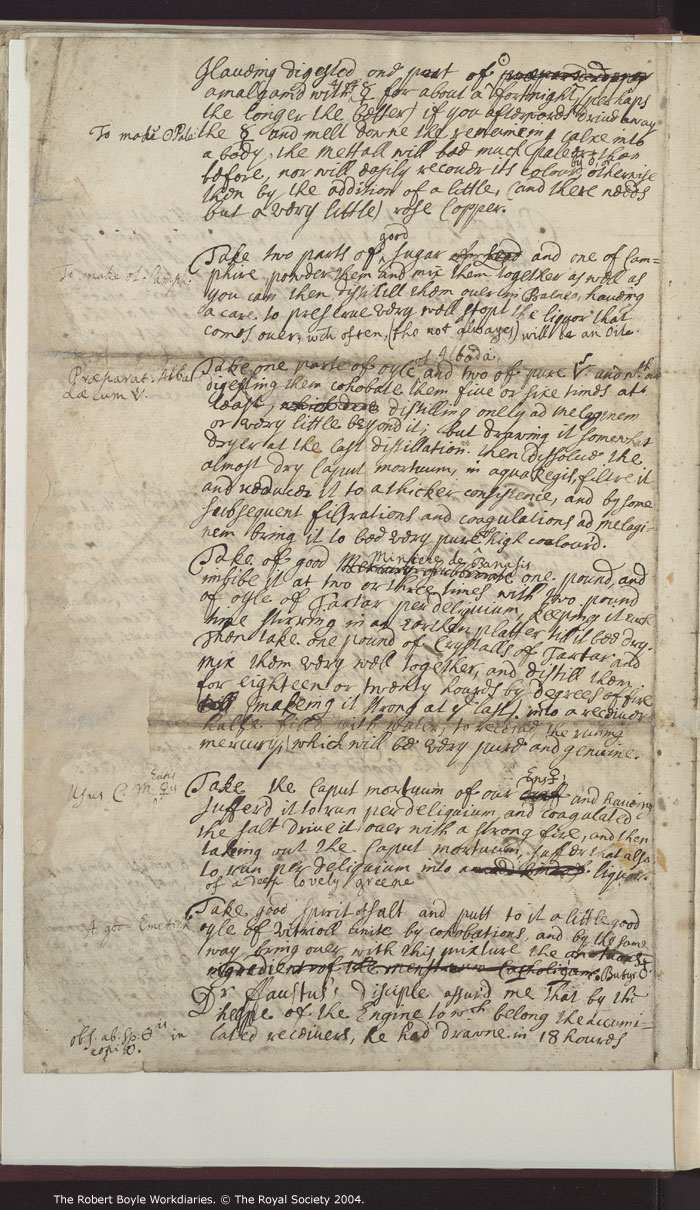 Haveing digested one part of ☉
amalgamd with 4 of ☿ for about a fortnight (perhaps
the longer the better) if you afterwards drive away
To make ☉ Pale
the ☿ and melt downe the remanent calx into
a body, the mettall will bee much paler than
before, nor will easily recover its colour otherwise
then by the addition of a little, (and there needs
but a very little) rose Copper.
Take two parts of good sugar and one of Cam-
To make ol. Camph.
phire powder them and mix them together as well as
you can then distill them over in Balneo, haveing
a care to preserve very well stopt the liquor that
comes over, wch often, (tho not always) will be an Oile.
Præparat. Albad
dæ cum
Take one parte of oyle of Albada, and two of pure and
digesting them cohobate them five or sixe times at
least, distilling onely ad melaginem
or very little beyond it; but drawing it somewhat
dryer at the last distillation. then dissolve the
almost dry Caput mortuum, in aqua Regis, filtre it
and reduce it to a thicker consistence, and by some
subsequent filtrations and coagulations ad melagi-
nem bring it to bee very pure high colour'd.
Take of good Miniere de Panasis one pound, and
imbibe it at two or three times with two pound
of oyle of Tartar per deliquium, keeping it each
time stirring in an earthen platter till it bee dry.
Then take one pound of Crystalls of Tartar and
mix them very well together, and distill them
for eighteen or twenty houres by degrees of fire
(makeing it strong at ye last) into a receiver
halfe fild with water, to receive the runing
mercury, which will be very pure and genuine.
Usus C. M. Entis
Take the Caput mortuum of our Ens and haveing
sufferd it to run per deliquium, and coagulated
the salt drive it over with a strong fire, and then
takeing out the Caput mortuum, suffer that also
to run per deliquium into a liquor
of a deep lovely greene
A good Emetick
Take good spirit of salt and putt to it a little good
oyle of vitrioll unite by cohobations, and by the same
way bring over with this mixture the
ingredient of the menstruum Catholicum.
Dr Faustus's disciple assurd me that by the
helpe of the Engine to wch belong the accumi-
obs. ab. sp. in
copiâ.
lated receivers, he had drawne in 18 houres
The Robert Boyle Workdiaries. © The Royal Society 2004.